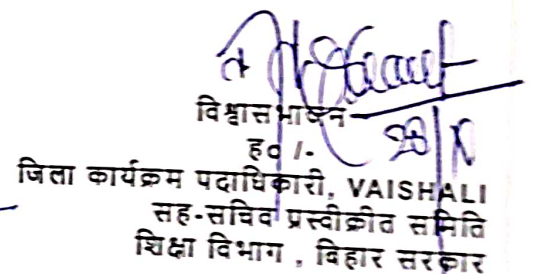 विश्वासभाजन
ह० /-
जिला कार्यक्रम पदाधिकारी, VAISHALI
सह-सचिव प्रस्वीक्रीत समिति
शिक्षा विभाग , बिहार सरकार